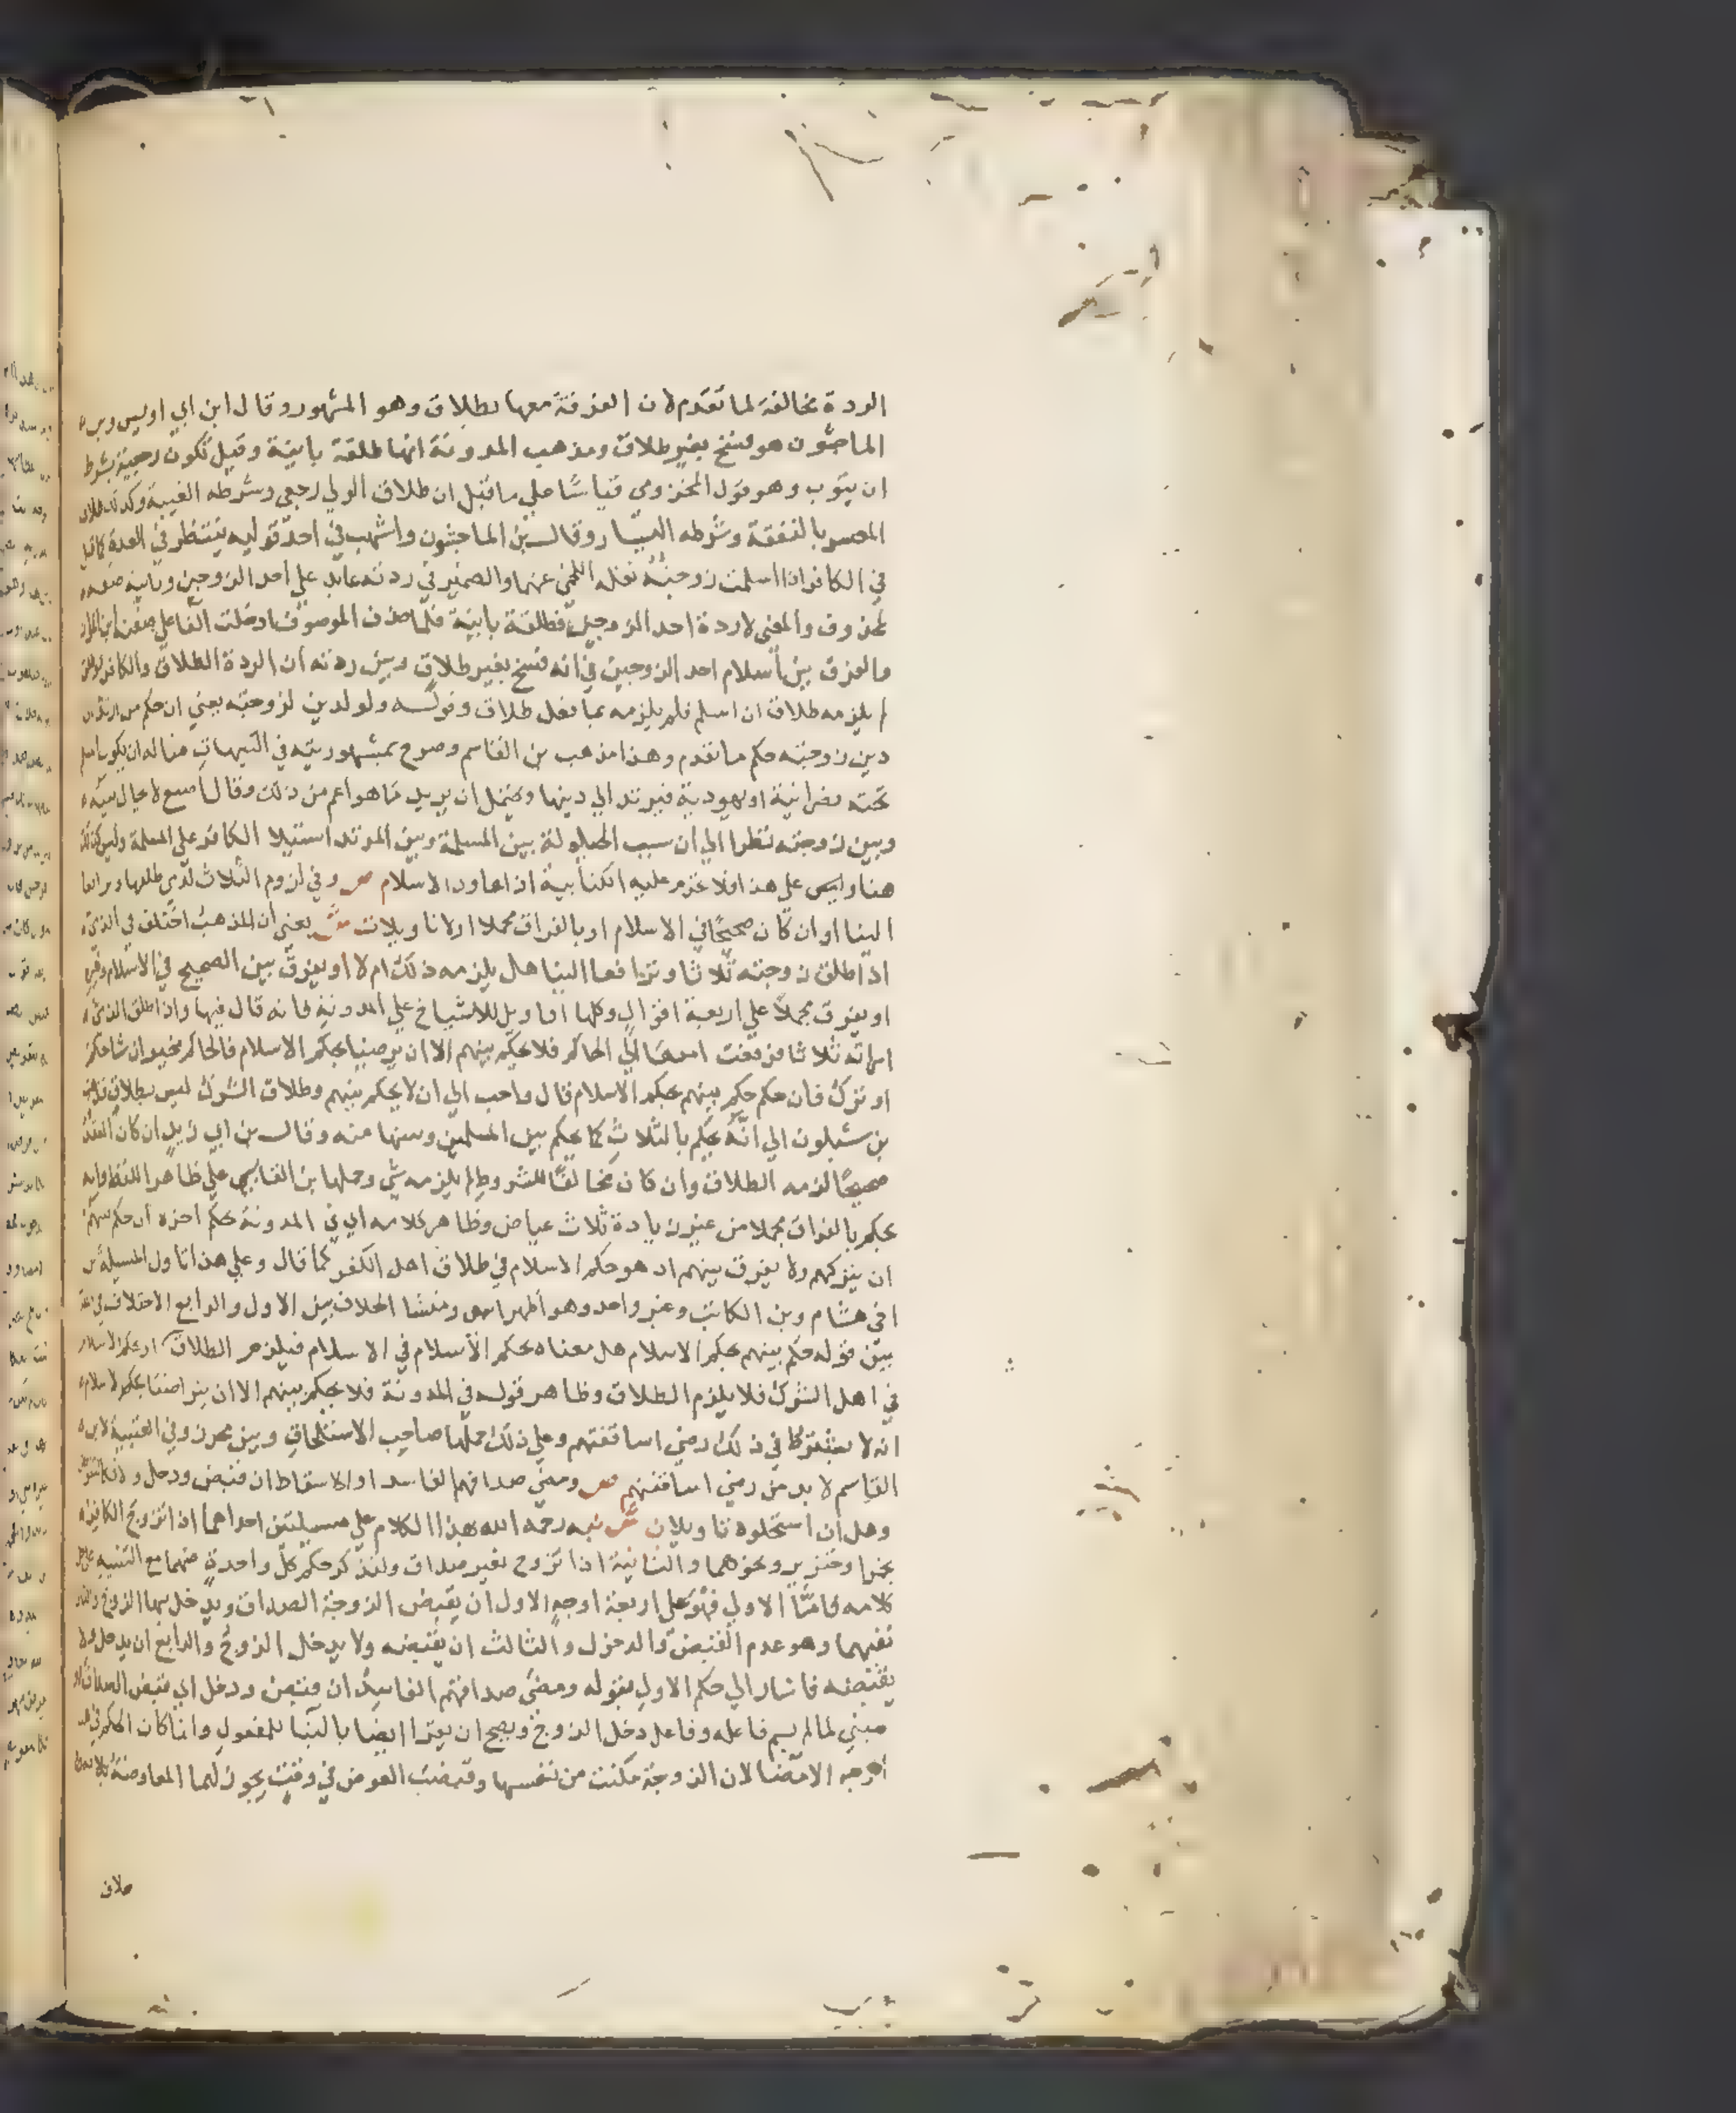 الردة مخالفة لما تقدم لان الفرقة معها بطلاق وهو المشهور وقال ابن ابي اويس وبن
الماجشون هو فسخ بغير طلاق ومذهب المدونة انها طلقة باينة وقيل تكون رجعية بشرط
ان يتوب وهو قول المخزومي قياسًا علي ما قبل ان طلاق الولي رجعي وشرطه الفيئة وكذلك طلاق
المعسر بالنفقة وشرطه اليسار وقال بن الماجشون واشهب في احد قوليه ينتظر في العدة كما قيل
في الكافر اذا اسلمت زوجته نقله اللخمي عنهما والضمير في ردته عايد علي احد الزوجين وباينة صفة
لمحذوف والمعني لا ردة احد الزوجين فطلقة باينة فلما حذف الموصوف ادخلت الفا علي صفته
والفرق بين اسلام احد الزوجين في انه فسخ بغير طلاق وبين ردته ان الردة الطلاق والكافر
لم يلزمه طلاق ان اسلم فلم يلزمه بما فعل طلاق وقوله ولو لدين لزوجته يعني ان حكم من ارتد الي
دين زوجته حكم ما تقدم وهذا مذهب بن القاسم وصرح بمشهوريته في التنبيهات مثاله ان يكون مسلم
تحته نصرانية او يهودية فيرتد الي دينها ويحتمل ان يريد ما هو اعم من ذلك وقال اصبغ لا يحال بينه
وبين زوجته نظرا الي ان سبب الحيلولة بين المسلمة وبين المرتد استيلا الكافر علي المسلمة وليس كذلك
هنا وليس علي هذا فلا تحرم عليه الكتابية اذا عاود الاسلام ص وفي لزوم الثلاث لذمي طلقها وترافعا
الينا او ان كان صحيحًا في الاسلام او بالفراق مجملا او لا تاويلات ش يعني ان المذهب اختلف في الذمي
اذا طلق زوجته ثلاثا وترافعا الينا هل يلزمه ذلك ام لا او يفرق بين الصحيح في الاسلام وغيره
او يفرق مجملاً علي اربعة اقوال وكلها اقاويل للاشياخ علي المدونة فانه قال فيها واذا طلق الذمي
امراته ثلاثا فرفعت امرها الي الحاكم فلا يحكم بينهم الا ان يرضيا بحكم الاسلام فالحاكم مخير ان شا حكم
او ترك فان حكم حكم بينهم بحكم الاسلام قال واحب الي ان لا يحكم بينهم وطلاق الشرك ليس بطلاق فذهب
بن شبلون الي انه يحكم بالثلاث كما يحكم بين المسلمين ومنها منه وقال بن ابي زيد ان كان العقد
صحيحًا لزمه الطلاق وان كان مخالفًا للشروط لم يلزمه شي وحملها بن القابسي علي ظاهر اللفظ وانه
يحكم بالفراق مجملا من غير زيادة ثلاث عياض وظاهر كلامه اي في المدونة
ان يتركهم ولا يفرق بينهم اذ هو حكم الاسلام في طلاق اهل الكفر كما قال وعلي هذا تاول المسيلة بن
اخي هشام وبن الكاتب وغير واحد وهو اظهر انتهي ومنشا الخلاف بين الاول والرابع الاختلاف في
بين قوله حكم بينهم بحكم الاسلام هل معناه بحكم الاسلام في الاسلام فيلزمهم الطلاق او بحكم الاسلام
في اهل الشرك فلا يلزم الطلاق وظاهر قوله في المدونة فلا يحكم بينهم الا ان يتراضيا بحكم الاسلام
انه لا يشترط في ذلك رضي اساقفتهم وعلي ذلك حملها صاحب الاستلحاق وبين محرز وفي العتبية لابن
القاسم لا بد من رضي اساقفتهم ص ومضي صداقهم الفاسد او الاسقاط ان قبض ودخل والا فكالتفويض
وهل ان استحلوه تاويلان ش نبه رحمه الله بهذا الكلام علي مسيلتين احداهما اذا تزوج الكافر
بخمرا وخنزير ونحوهما والثانية اذا تزوج بغير صداق ولنذكر حكم كل واحدة منهما مع التنبيه علي
كلامه فامّا الاولي فهو علي اربعة اوجه الاول ان يقبض الزوجة الصداق ويدخل بها الزوج
نفيهما وهو عدم القبض والدخول والثالث ان يقبضه ولا يدخل الزوج والرابع ان يدخل ولا
يقبضه فاشار الي حكم الاول بقوله ومضي صداقهم الفاسد ان قبض ودخل اي قبض الصداق
مبني لما لم يسم فاعله وفاعل دخل الزوج ويصح ان يقرا ايضا بالبنا للمفعول وانما كان الحكم في هذا
الوجه الامضا لان الزوجة مكنت من نفسها وقبضت العوض في وقت يجوز لهما المعاوضة
صلاق